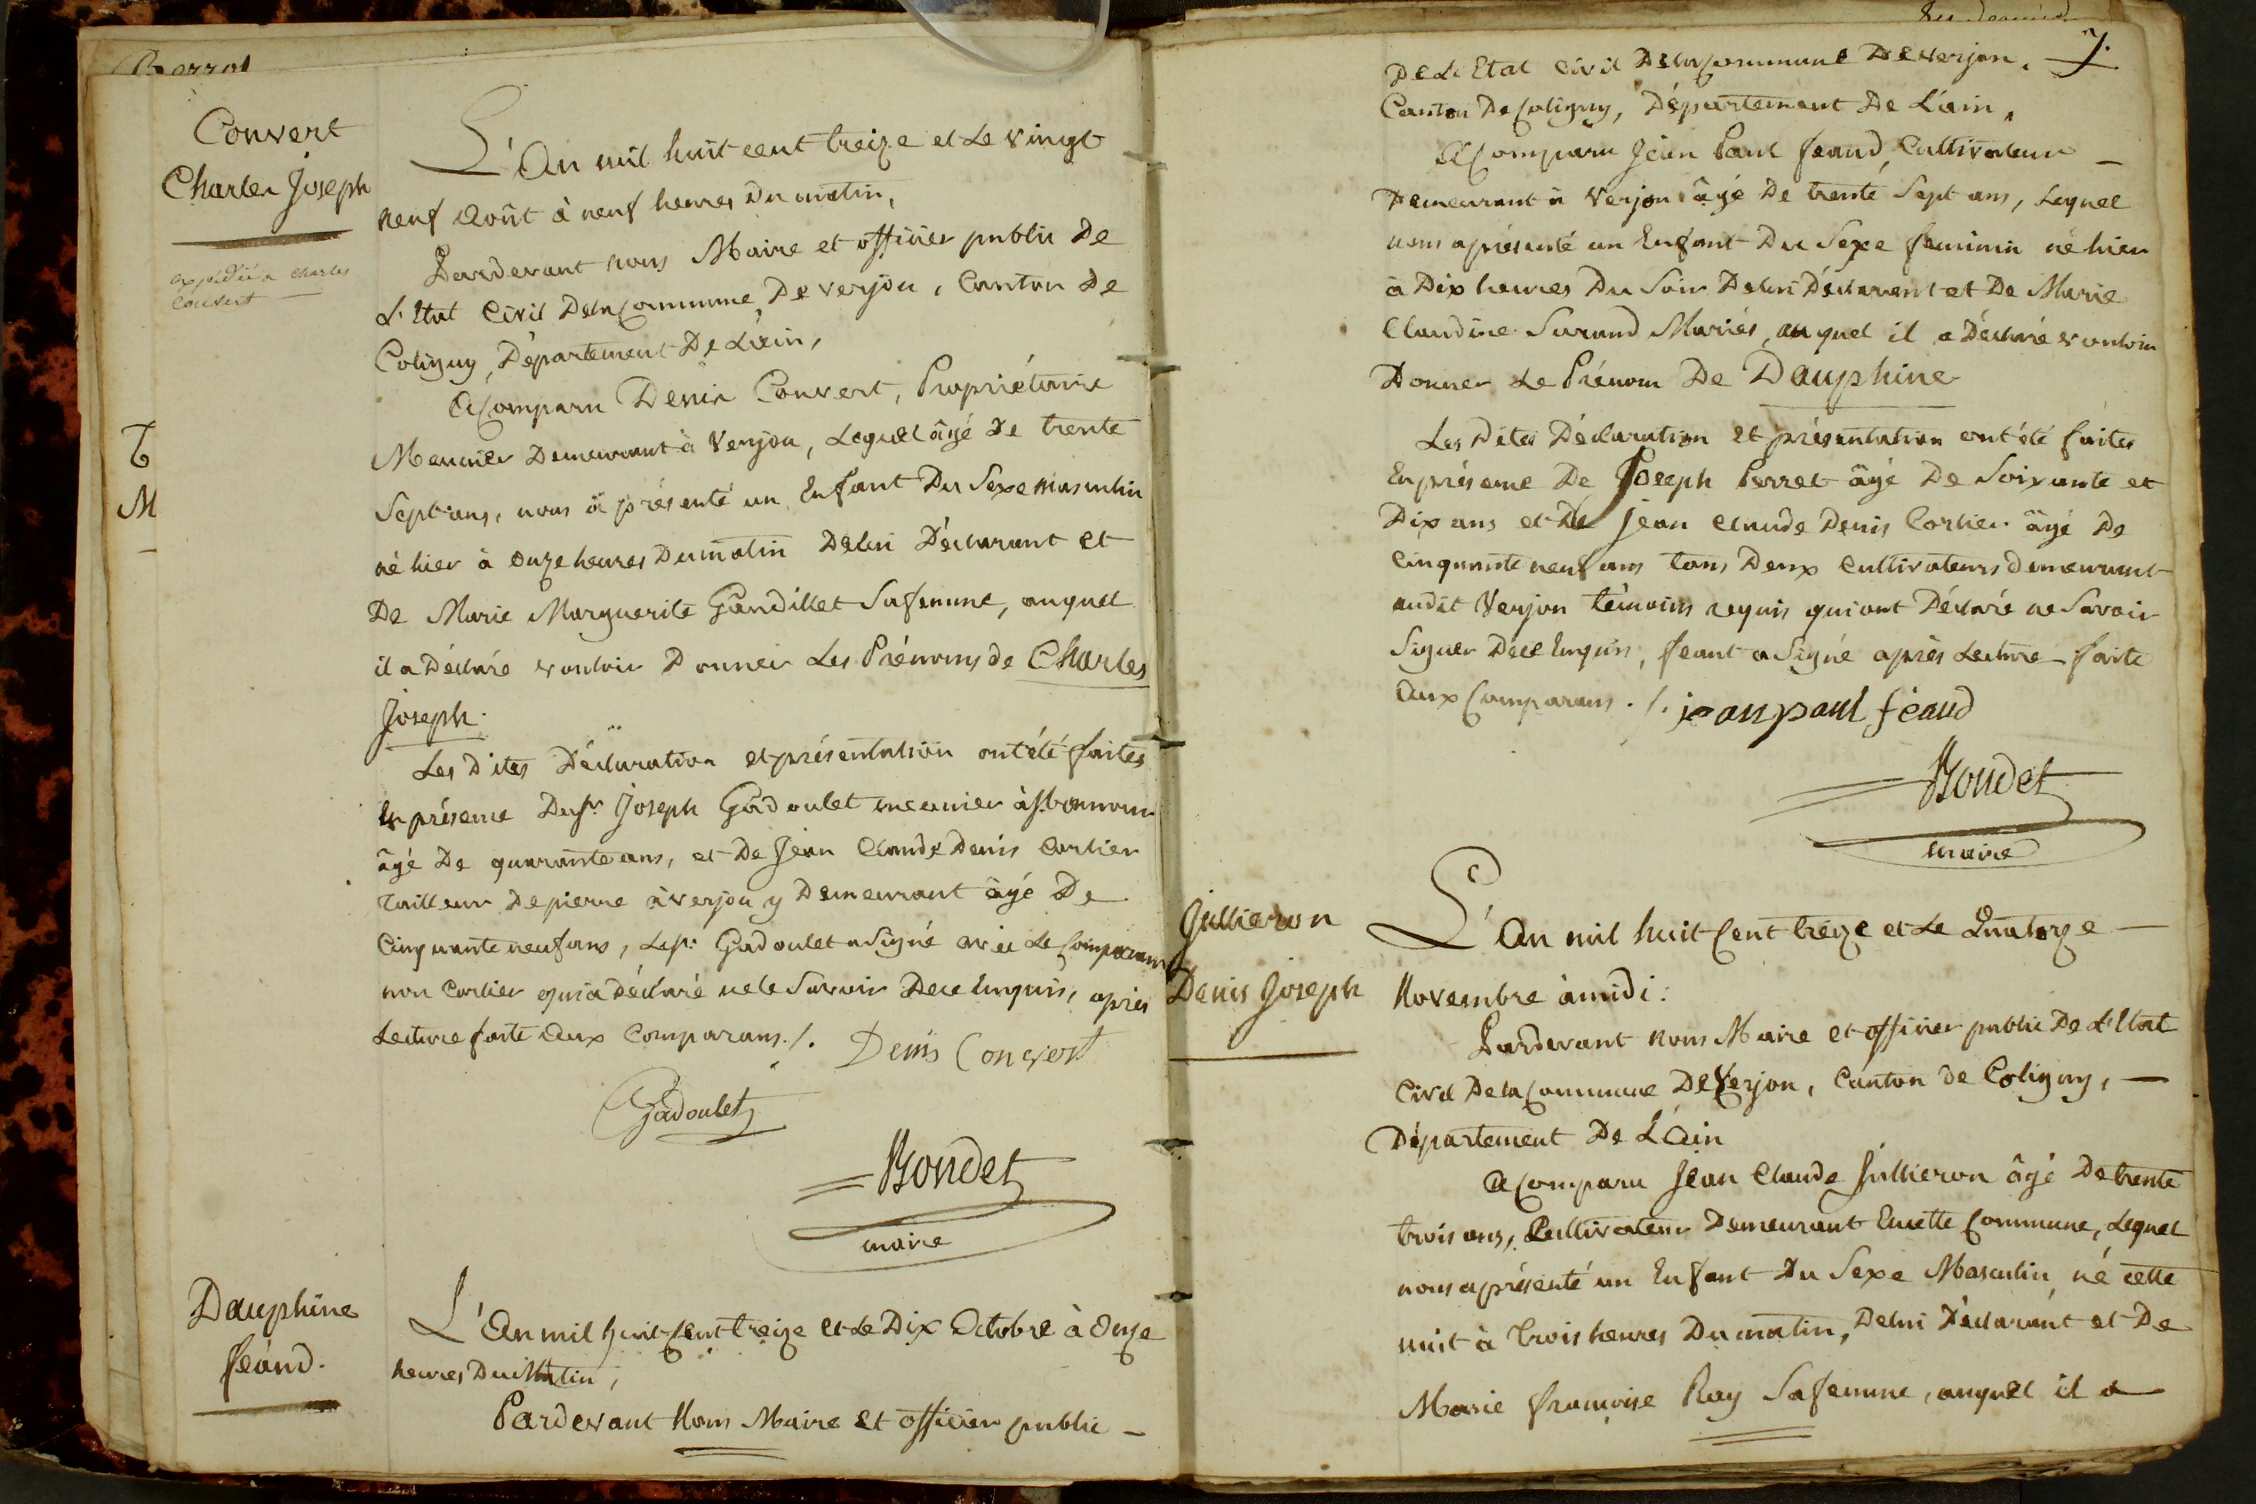 Convert
Charles Joseph
expédié à Charles
Convert
T
M
L'An mil huit cent treize et Le vingt
neuf Août à neuf heures Du matin,
Pardevant nous Maire et officier public De
L'Etat Civil DelaCommune De verjon, Canton De
Coligny, Département De L'ain,
AComparu Denis Convert, Propriétaire
Meunier Demeurant à Verjon, Lequel âgé De trente
Sept ans, nous a présenté un Enfant Du Sexe Masculin
né hier à onze heures Du matin Delui Déclarant et
De Marie Marguerite Gandillet Safemme, auquel
il a Déclaré vouloir Donner Les Prénoms de Charles
Joseph.
Les Dites Déclaration et présentation ont été faites
En présence Du Sr. Joseph Gadoulet meunier à
âgé De quarante ans, et De Jean Claude Denis Corlier
Tailleur De pierre à Verjon y Demeurant âgé De
Cinquante neuf ans, Le Sr. Gadoulet a Signé avec Le Comparant
non Corlier qui a Déclaré ne le Savoir Dece Enquis, après
Lecture faite aux Comparans ./. Denis Convert
Gadoulet
Bondet
maire
Dauphine
feaud.
L'An mil huit Cent treize et Le Dix Octobre à Onze
heures Du Matin,
Pardevant Nous Maire Et officier public
7.
De L'Etat Civil DelaCommune De Verjon,
Canton De Coligny, Département De L'ain,
AComparu Jean Paul feaud, Cultivateur
Demeurant à Verjon âgé De trente Sept ans, Lequel
nous a présenté un Enfant Du Sexe feminin né hier
à Dix heures Du Soir Delui Déclarant et De Marie
Claudine Surand Mariés, auquel il a Déclaré vouloir
Donner Le Prénom De Dauphine
Les Dites Déclaration Et présentation ont été faites
En présence De Joseph Perret âgé De Soixante et
Dix ans et De Jean Claude Denis Corlier âgé De
Cinquante neuf ans tous Deux Cultivateurs demeurant
audit Verjon témoins requis qui ont Déclaré ne Savoir
Signer Dece Enquis, feaut a Signé après Lecture faite
aux Comparans ./. jean paul féaud
Bondet
maire
Jullieron
Denis Joseph
L'An mil huit Cent treize et Le Quatorze
Novembre à midi:
Pardevant nous Maire et officier public De L'Etat
Civil DelaCommune De Verjon, Canton de Coligny,
Département De L'Ain
AComparu Jean Claude Jullieron âgé De trente
trois ans, Cultivateur Demeurant En cette Commune, Lequel
nous a présenté un Enfant Du Sexe Masculin né cette
nuit à trois heures Du matin, Delui Déclarant et De
Marie françoise Ray Safemme, auquel il a